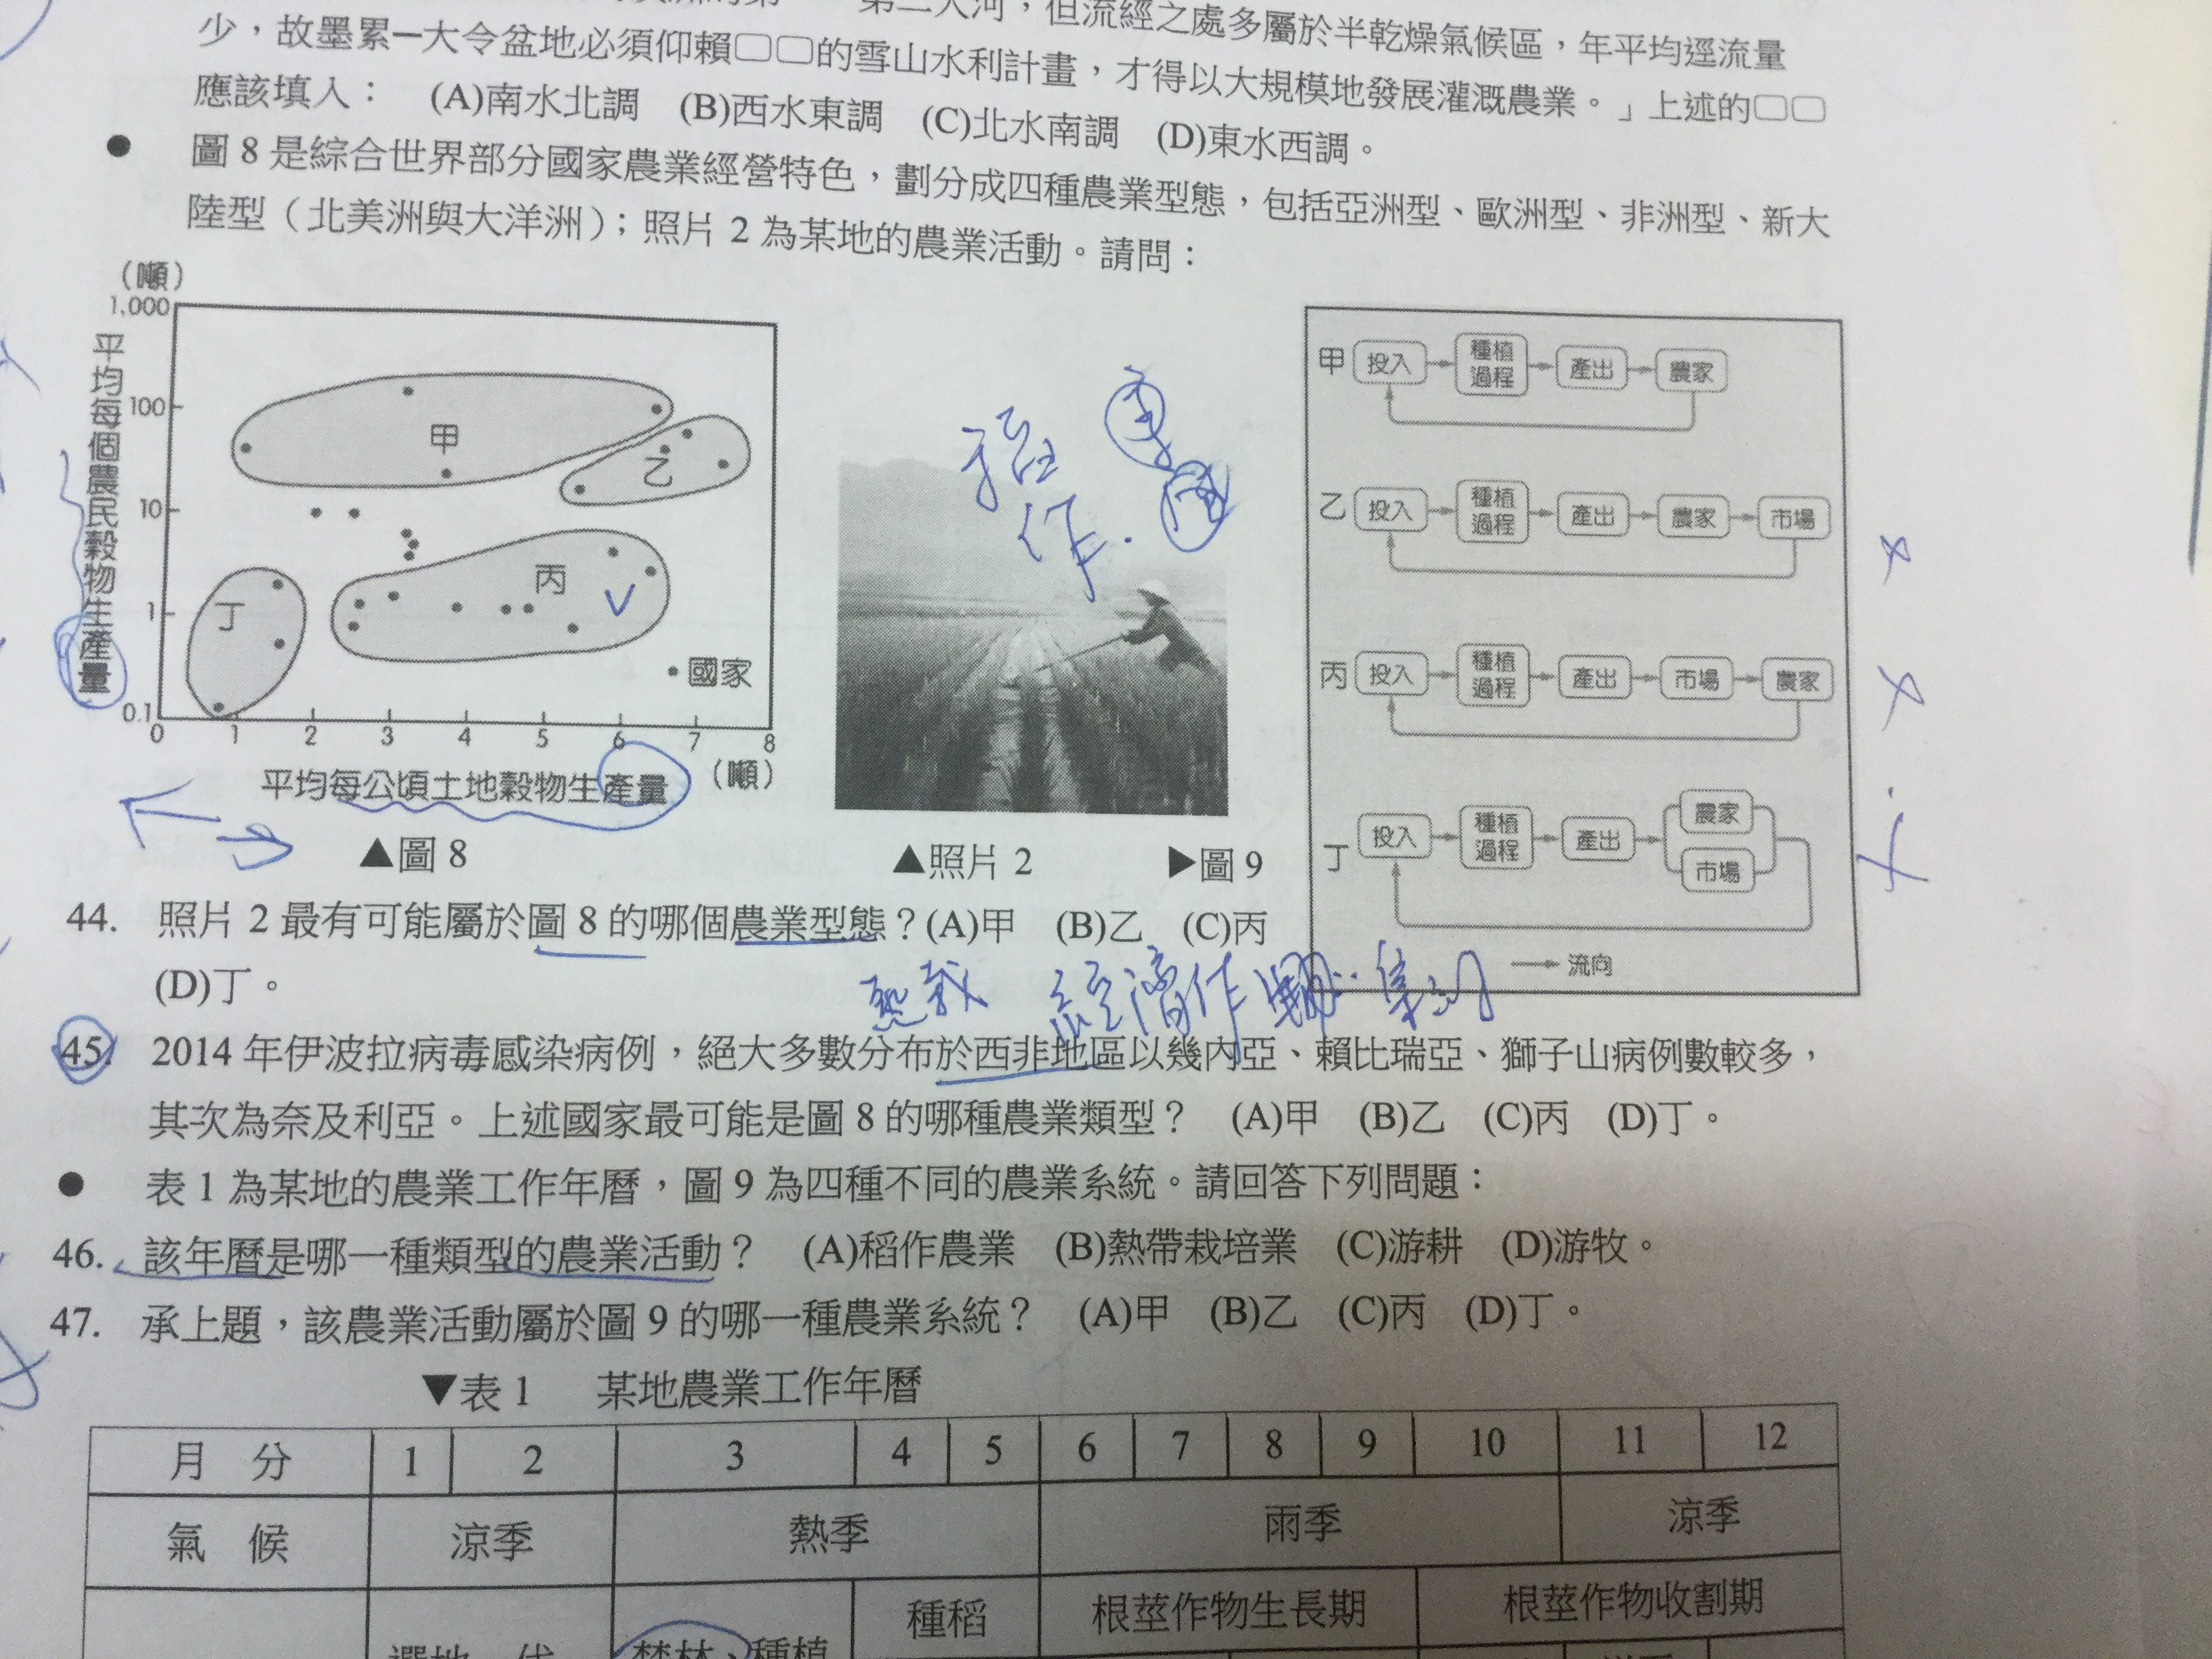 第二大河，但流經之處多屬於半乾燥氣候區，年平均逕流量
少，故墨累－大令盆地必須仰賴□□的雪山水利計畫，才得以大規模地發展灌溉農業。」上述的□□
應該填入： (A)南水北調 (B)西水東調 (C)北水南調 (D)東水西調。
● 圖 8 是綜合世界部分國家農業經營特色，劃分成四種農業型態，包括亞洲型、歐洲型、非洲型、新大
陸型（北美洲與大洋洲）；照片 2 為某地的農業活動。請問：
（噸）
1,000
100
10
1
0.1
平均每個農民穀物生產量
甲
乙
丙
丁
•國家
0 1 2 3 4 5 6 7 8
平均每公頃土地穀物生產量 （噸）
▲圖 8
稻作．
▲照片 2
▶圖 9
甲 投入 種植過程 產出 農家
乙 投入 種植過程 產出 農家 市場
丙 投入 種植過程 產出 市場 農家
丁 投入 種植過程 產出 農家 市場
→流向
44. 照片 2 最有可能屬於圖 8 的哪個農業型態？(A)甲 (B)乙 (C)丙
(D)丁。
熱栽 經濟作物
45. 2014 年伊波拉病毒感染病例，絕大多數分布於西非地區以幾內亞、賴比瑞亞、獅子山病例數較多，
其次為奈及利亞。上述國家最可能是圖 8 的哪種農業類型？ (A)甲 (B)乙 (C)丙 (D)丁。
● 表 1 為某地的農業工作年曆，圖 9 為四種不同的農業系統。請回答下列問題：
46. 該年曆是哪一種類型的農業活動？ (A)稻作農業 (B)熱帶栽培業 (C)游耕 (D)游牧。
47. 承上題，該農業活動屬於圖 9 的哪一種農業系統？ (A)甲 (B)乙 (C)丙 (D)丁。
▼表 1 某地農業工作年曆
月 分 1 2 3 4 5 6 7 8 9 10 11 12
氣 候 涼季 熱季 雨季 涼季
種稻 根莖作物生長期 根莖作物收割期
選地、伐 焚林、種植